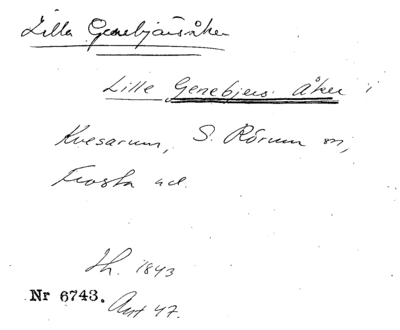 Lilla Genebjärsåker
Lille Genebjers Åker i
Kvesarum, S. Rörum sn,
Frosta hd.
Sh. 1843
Nr 6743. Avt 47.